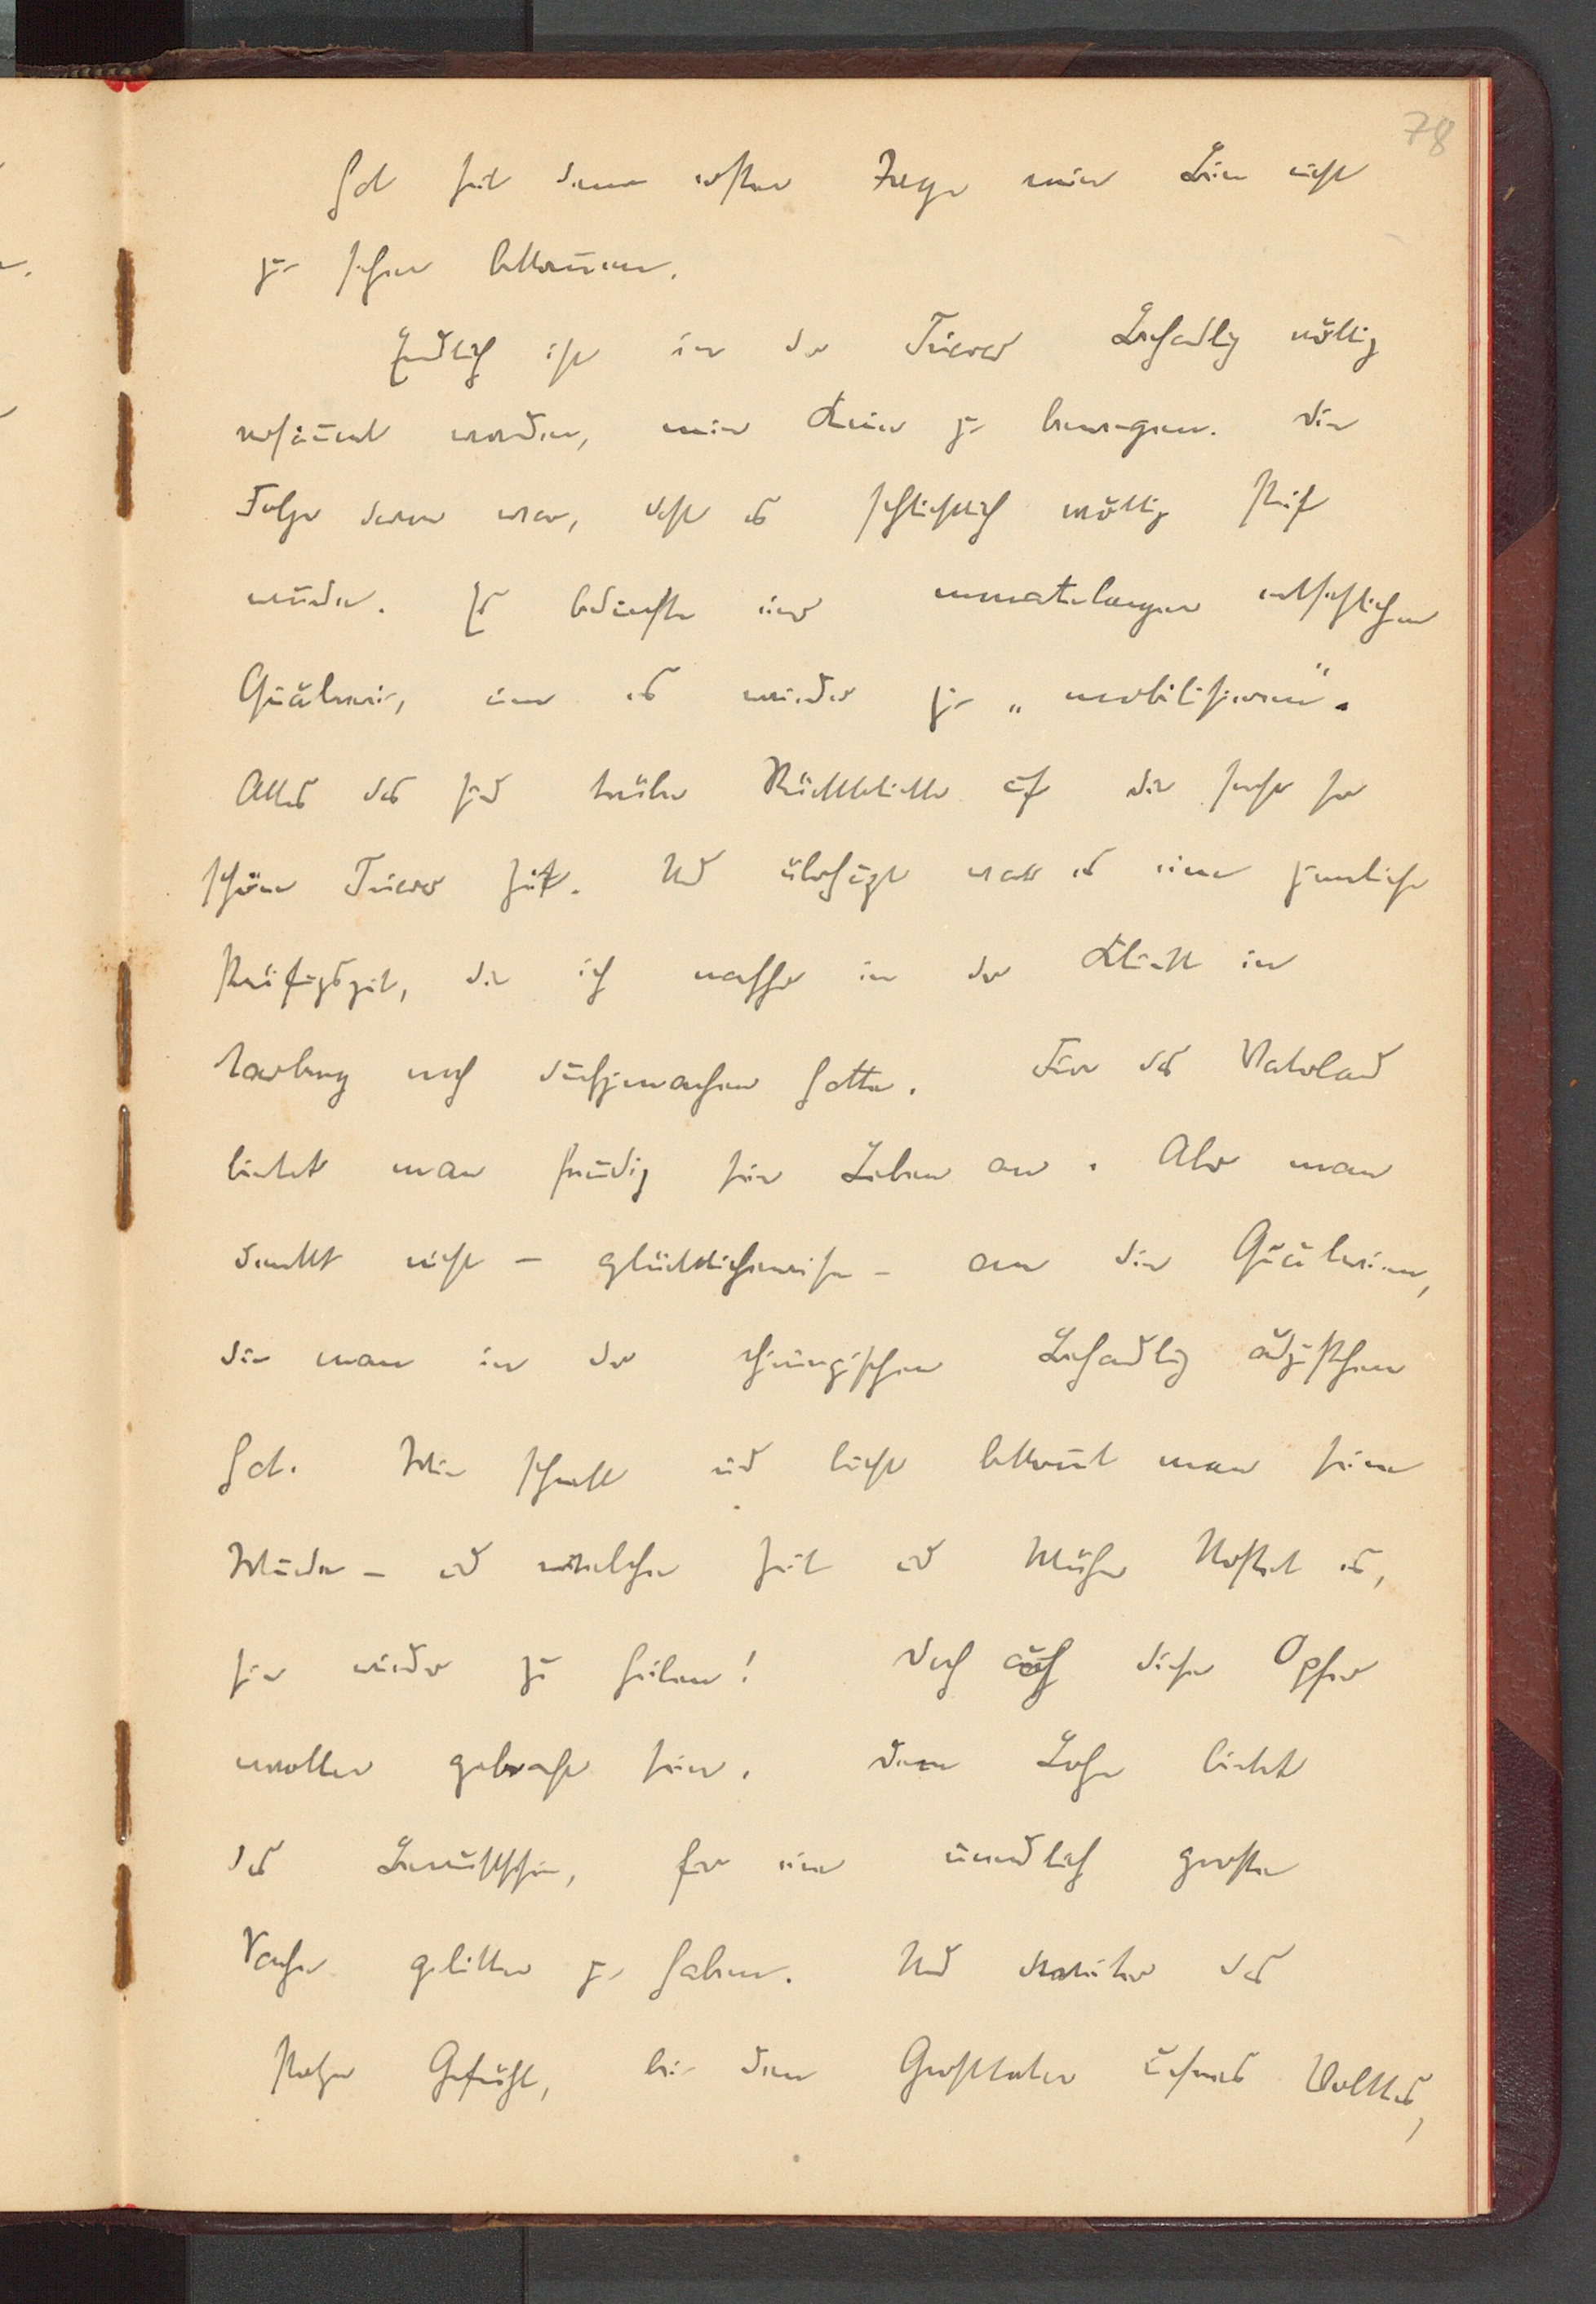 78
hat seit dem ersten Tage mein Bein nicht
zu sehen bekommen.
Endlich ist in der Trierer Behandlung völlig
versäumt worden, mein Knie zu bewegen. Die
Folge davon war, dass es schliesslich völlig steif
wurde. Es bedurfte einer monatelangen entsetzlichen
Quälerei, um es wieder zu „mobilisieren".
Alles das sind trübe Rückblicke auf die sonst so
schöne Trierer Zeit. Und überhaupt war es eine ziemliche
Prüfungszeit, die ich nachher in der Klinik in
Marburg noch durchzumachen hatte. Für das Vaterland
bietet man freudig sein Leben an. Aber man
denkt nicht – glücklicherweise – an die Quälereien,
die man in der chirurgischen Behandlung auszustehen
hat. Wie schnell und leicht bekommt man seine
Wunde – und welche Zeit und Mühe kostet es,
sie wieder zu heilen! Doch auch diese Opfer
wollen gebracht sein. Den Lohn bietet
das Bewusstsein, für eine unendlich grosse
Sache gelitten zu haben. Und darüber das
stolze Gefühl, bei den Grosstaten unseres Volkes,